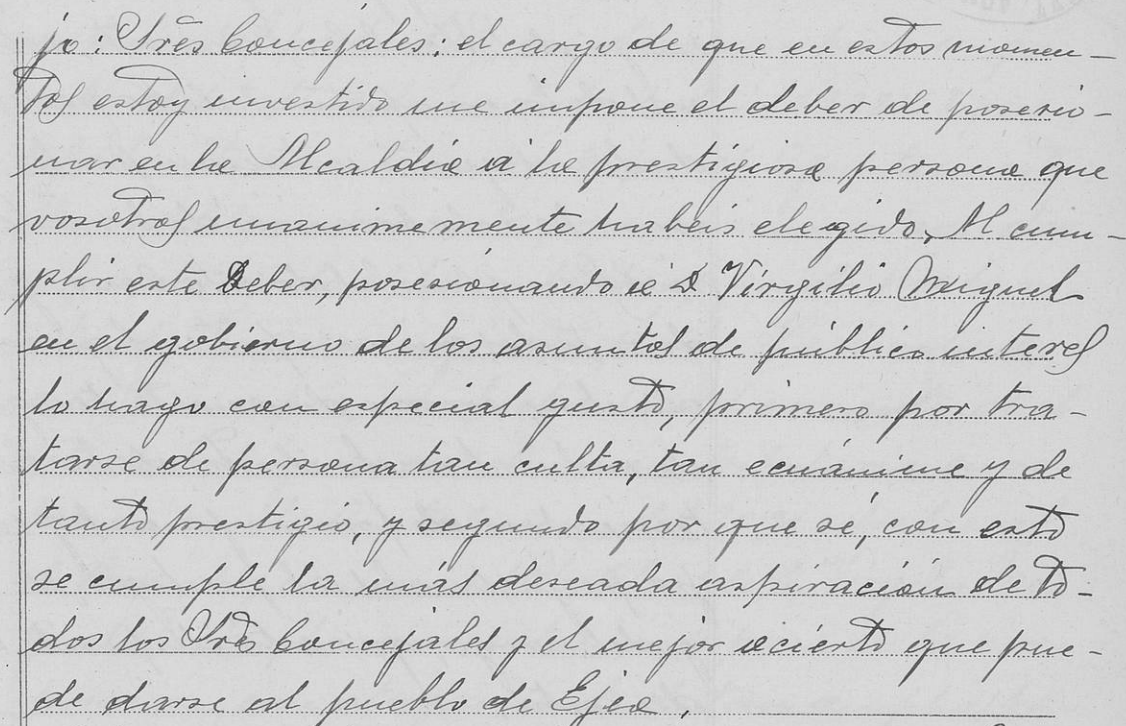 jo: Sres Concejales: el cargo de que en estos momen-
tos estoy investido me impone el deber de posesio-
nar en la Alcaldia a la prestigiosa persona que
vosotros unanimemente habeis elegido. Al cum-
plir este deber, posesionando a D Virgilio Miguel
en el gobierno de los asuntos de público interes
lo hago con especial gusto, primero por tra-
tarse de persona tan culta, tan ecuánime y de
tanto prestigio, y segundo por que sé, con esto
se cumple la más deseada aspiración de to-
dos los Sres Concejales y el mejor acierto que pue-
de darse al pueblo de Ejea.